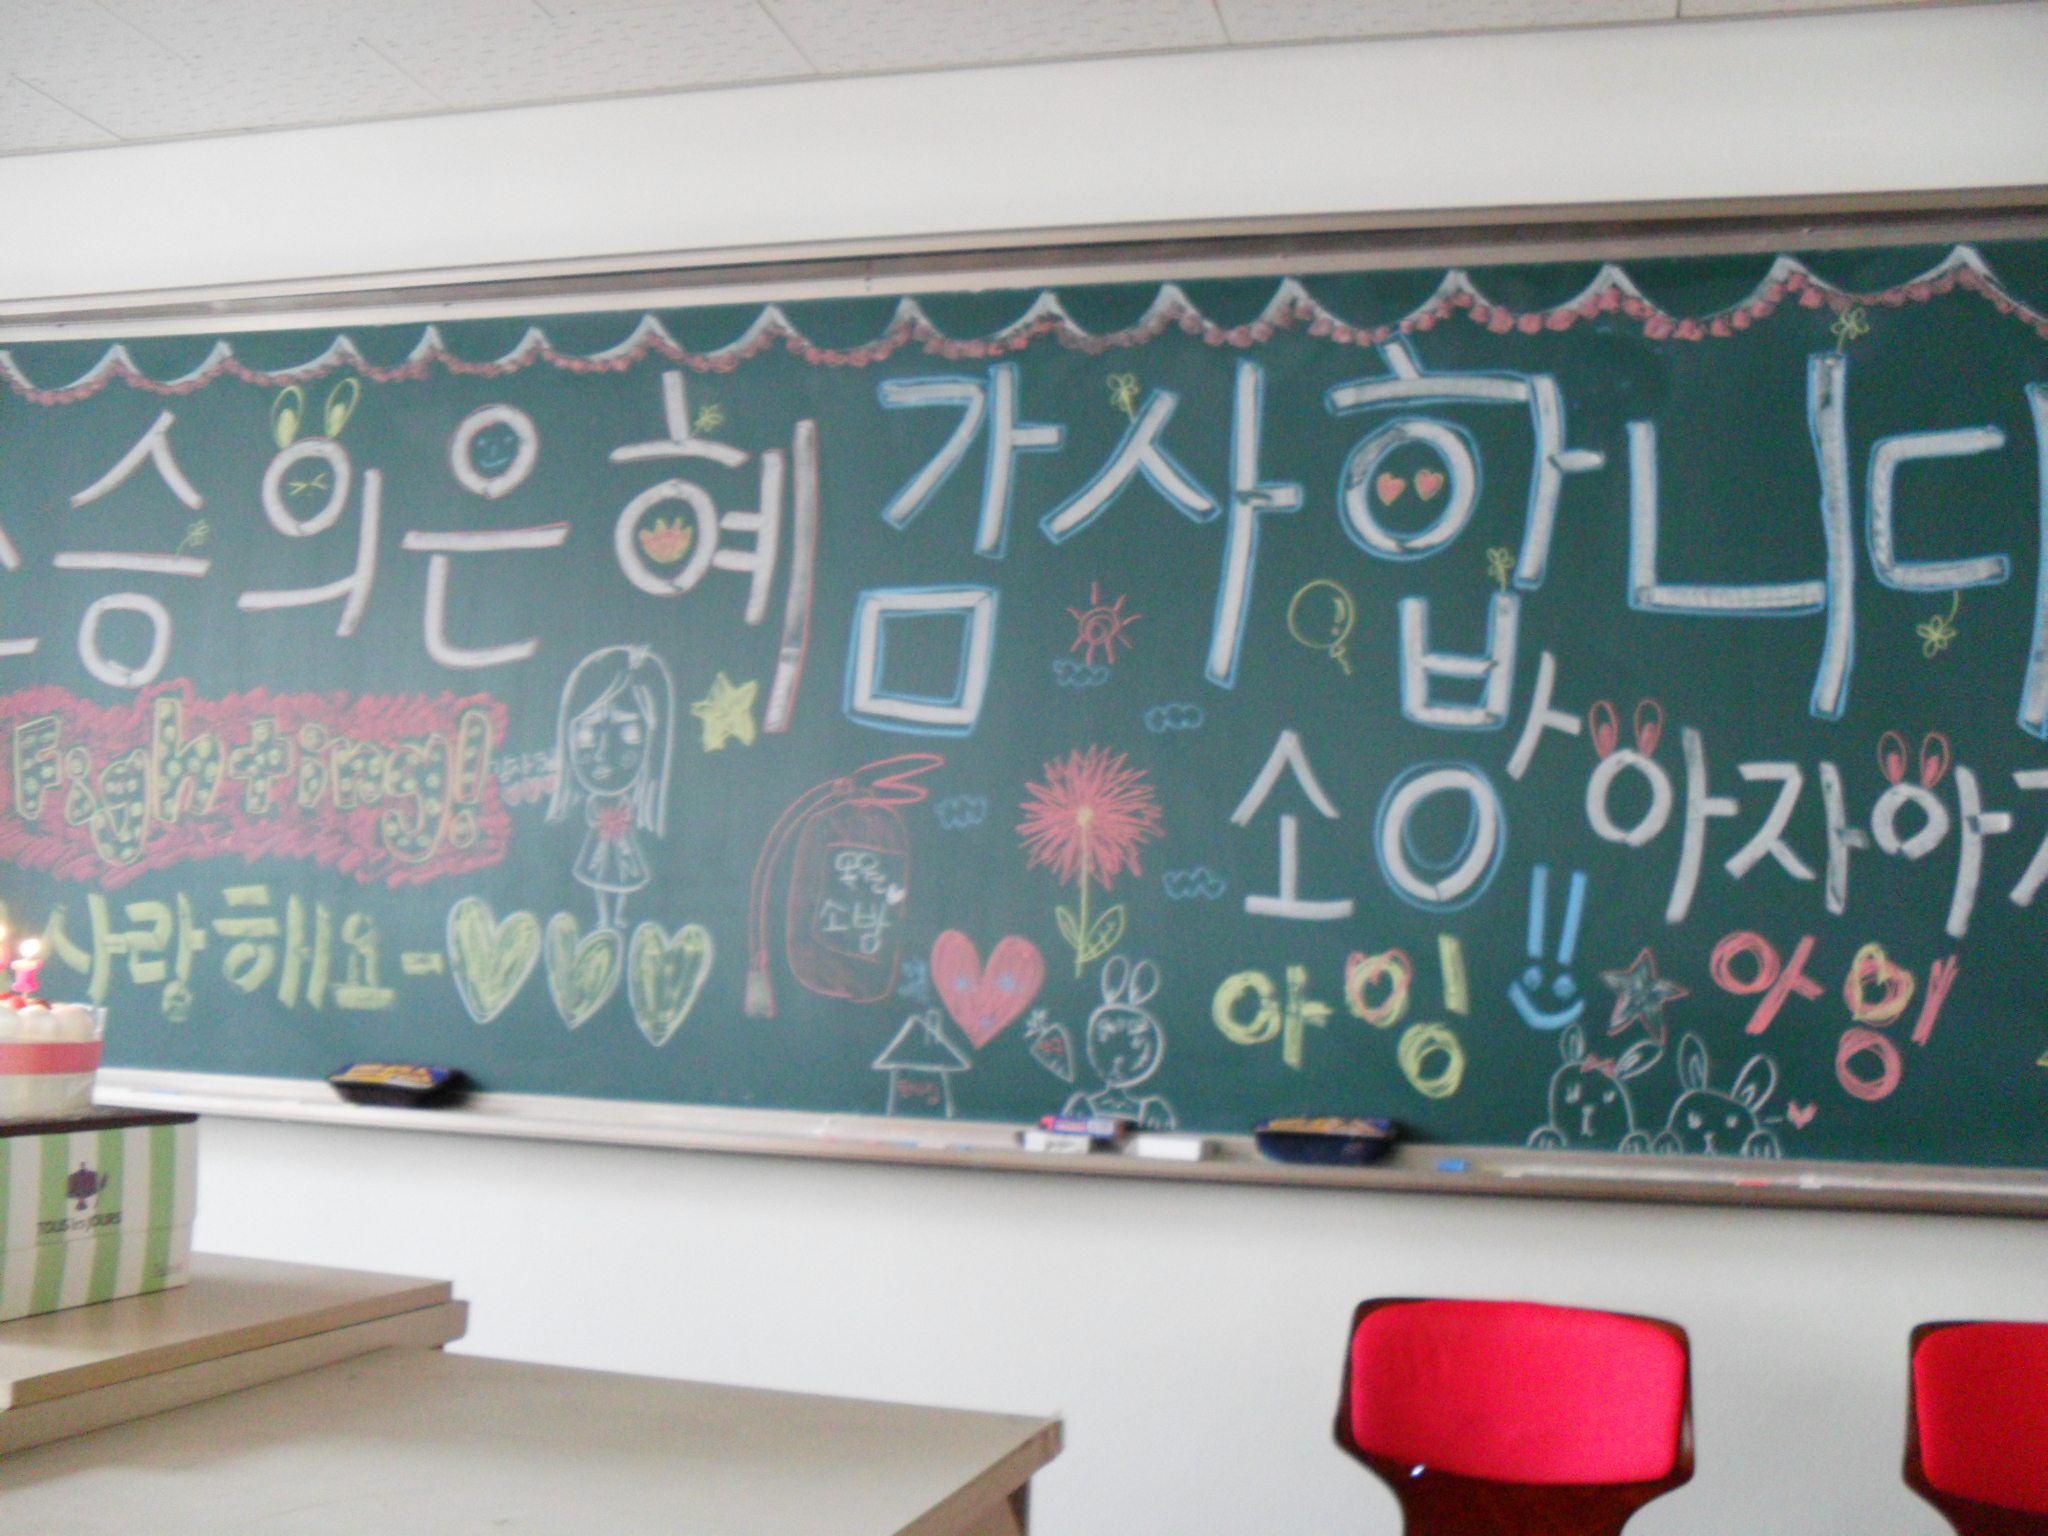 스승의은혜 감사합니다
Fighting!
소방 아자아자
사랑해요-
소방
아잉 아잉
TOUS les JOURS